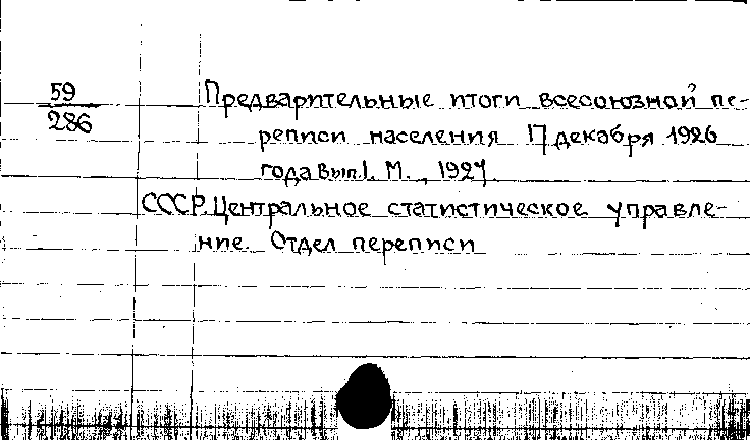 59
286
Предварительные итоги всесоюзной пе-
реписи населения 17 декабря 1926
года Вып.1. М., 1927.
СССР. Центральное статистическое управле-
ние. Отдел переписи